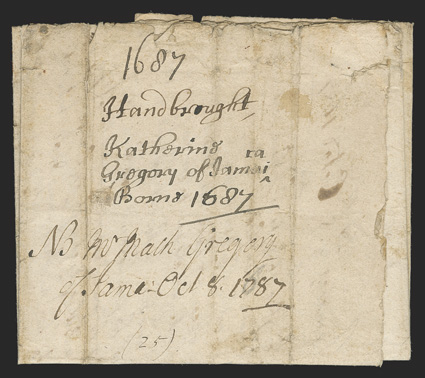 1687
Handbrought
Katherine
Gregory of Jamaica
Borne 1687
No Mr Nath Gregory
of Jama: Oct 8. 1787
(25)